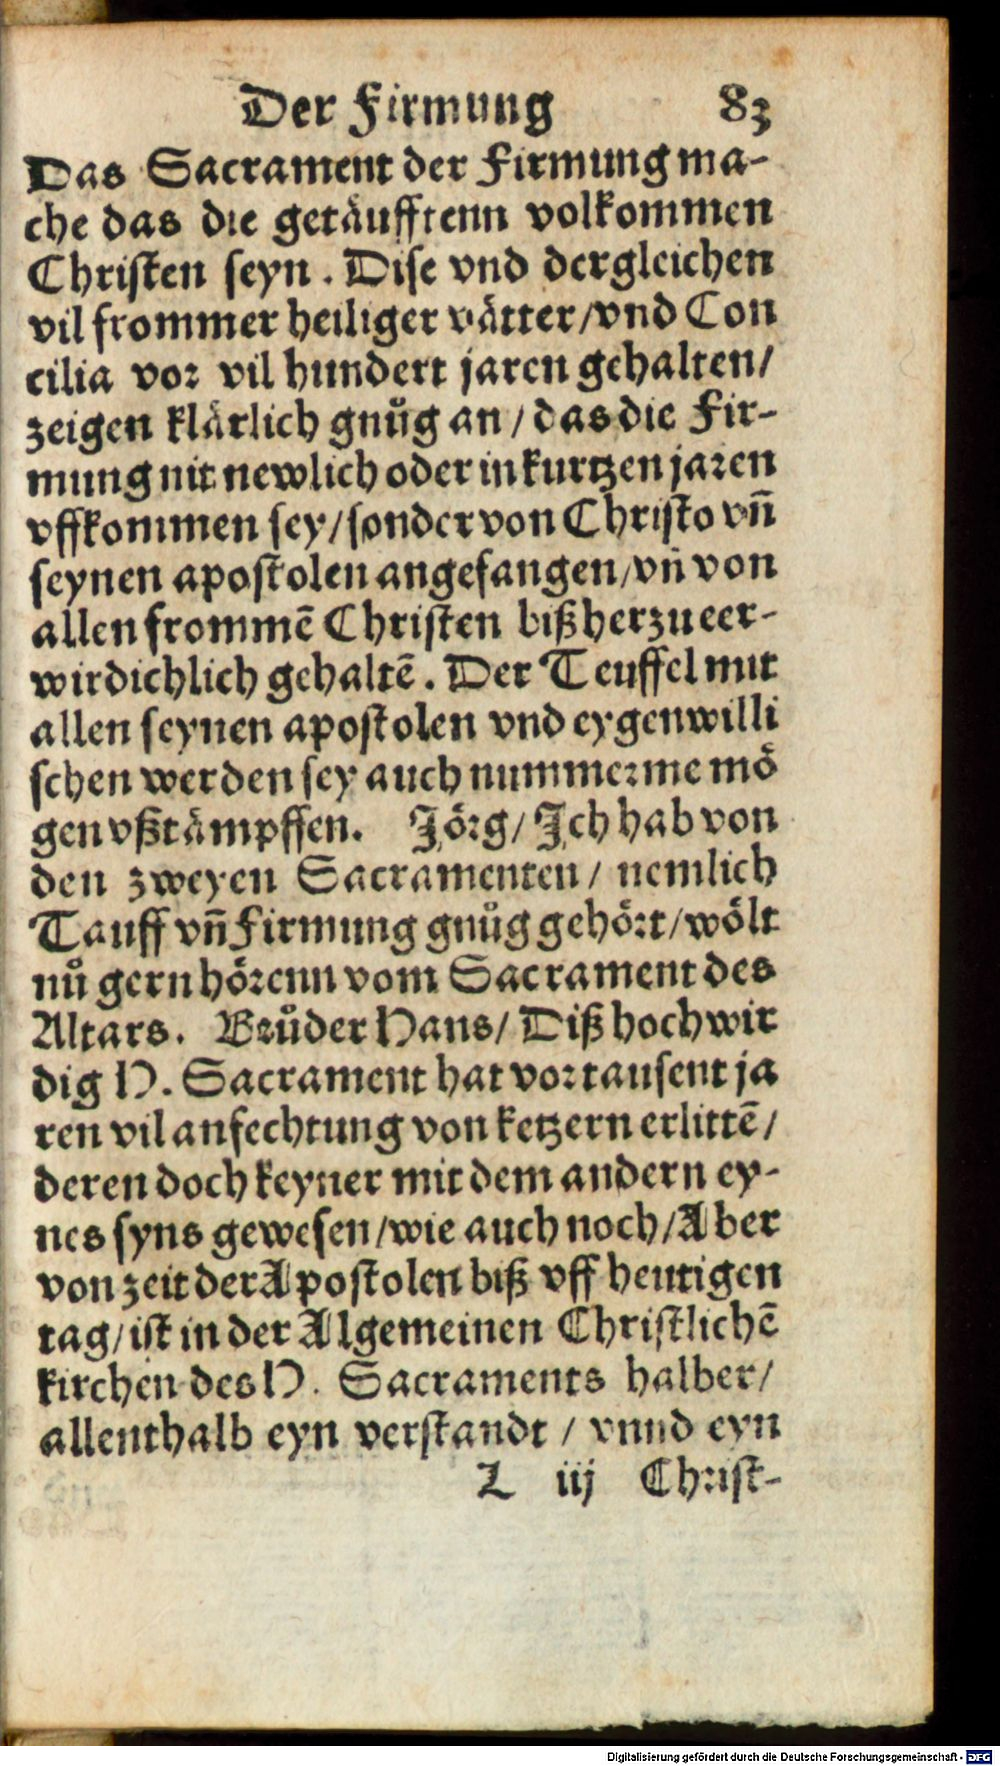 Der Firmung 83
Das Sacrament der Firmung ma-
che das die getäufftenn volkommen
Christen seyn. Dise vnd dergleichen
vil frommer heiliger vätter/vnd Con
cilia vor vil hundert jaren gehalten/
zeigen klärlich gnůg an/das die Fir-
mung nit newlich oder in kurtzen jaren
vffkommen sey/sonder von Christo vñ
seynen apostolen angefangen/vñ von
allen frommẽ Christen biß herzu eer-
wirdichlich gehaltẽ. Der Teuffel mit
allen seynen apostolen vnd eygenwilli
schen werden sey auch nummerme mö
gen vßtämpffen. Jörg/Jch hab von
den zweyen Sacramenten/nemlich
Tauff vñ Firmung gnůg gehört/wölt
nů gern hörenn vom Sacrament des
Altars. Brůder Hans/Diß hochwir
dig H. Sacrament hat vor tausent ja
ren vil anfechtung von ketzern erlittẽ/
deren doch keyner mit dem andern ey-
nes syns gewesen/wie auch noch/Aber
von zeit der Apostolen biß vff heutigen
tag/ist in der Algemeinen Christlichẽ
kirchen des H. Sacraments halber/
allenthalb eyn verstandt/vnnd eyn
L iij Christ-
Digitalisierung gefördert durch die Deutsche Forschungsgemeinschaft - DFG